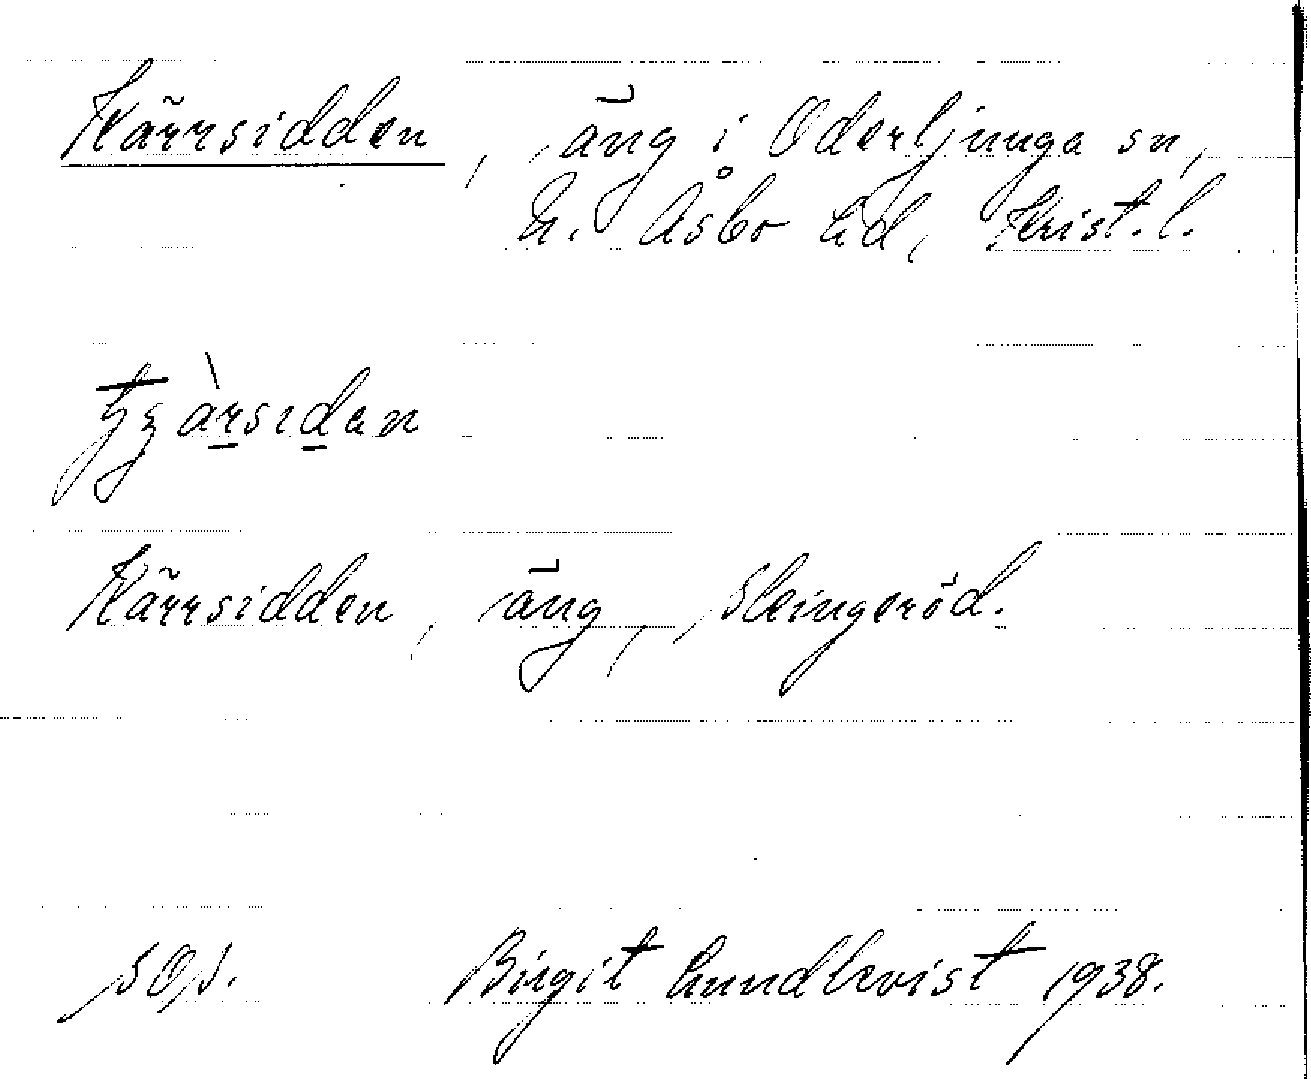 Kärrsidden, äng i Oderljunga sn,
N. Åsbo hd, Krist. l.
Kärrsidden, äng, Skingeröd.
sOs. Birgit Lundkvist 1938.